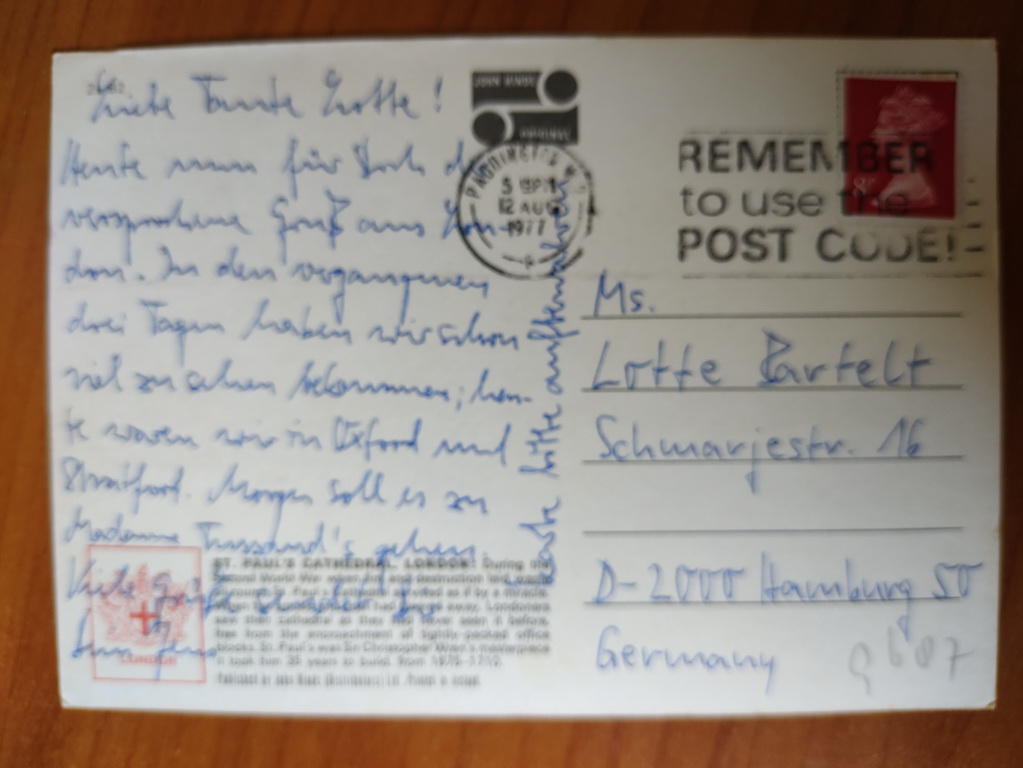 Liebe Tante Lotte!
Heute nun für Dich d
versprochene Gruß aus Lon-
don. In den vergangenen
drei Tagen haben wir schon
viel zu sehen bekommen; heu-
te waren wir in Oxford und
Stratford. Morgen soll es zu
Madame Tussaud's gehen.
Viele
Dein Jens
Karte bitte aufbewahren
JOHN HINDE
ORIGINAL
PADDINGTON W.2
5 30PM
12 AUG
1977
REMEMBER
to use the
POST CODE!
Ms.
Lotte Bartelt
Schmarjestr. 16
D-2000 Hamburg 50
Germany
9607
ST. PAUL'S CATHEDRAL, LONDON. During the
Second World War when fire and destruction laid waste
around, St. Paul's Cathedral survived as if by a miracle.
When the had been cleared away, Londoners
saw their cathedral as they had never seen it before,
free from the encroachment of tightly-packed office
blocks. St. Paul's was Sir Christopher Wren's masterpiece
it took him 35 years to build, from 1675-1710.
Published by John Hinde (Distributors) Ltd.
LONDON